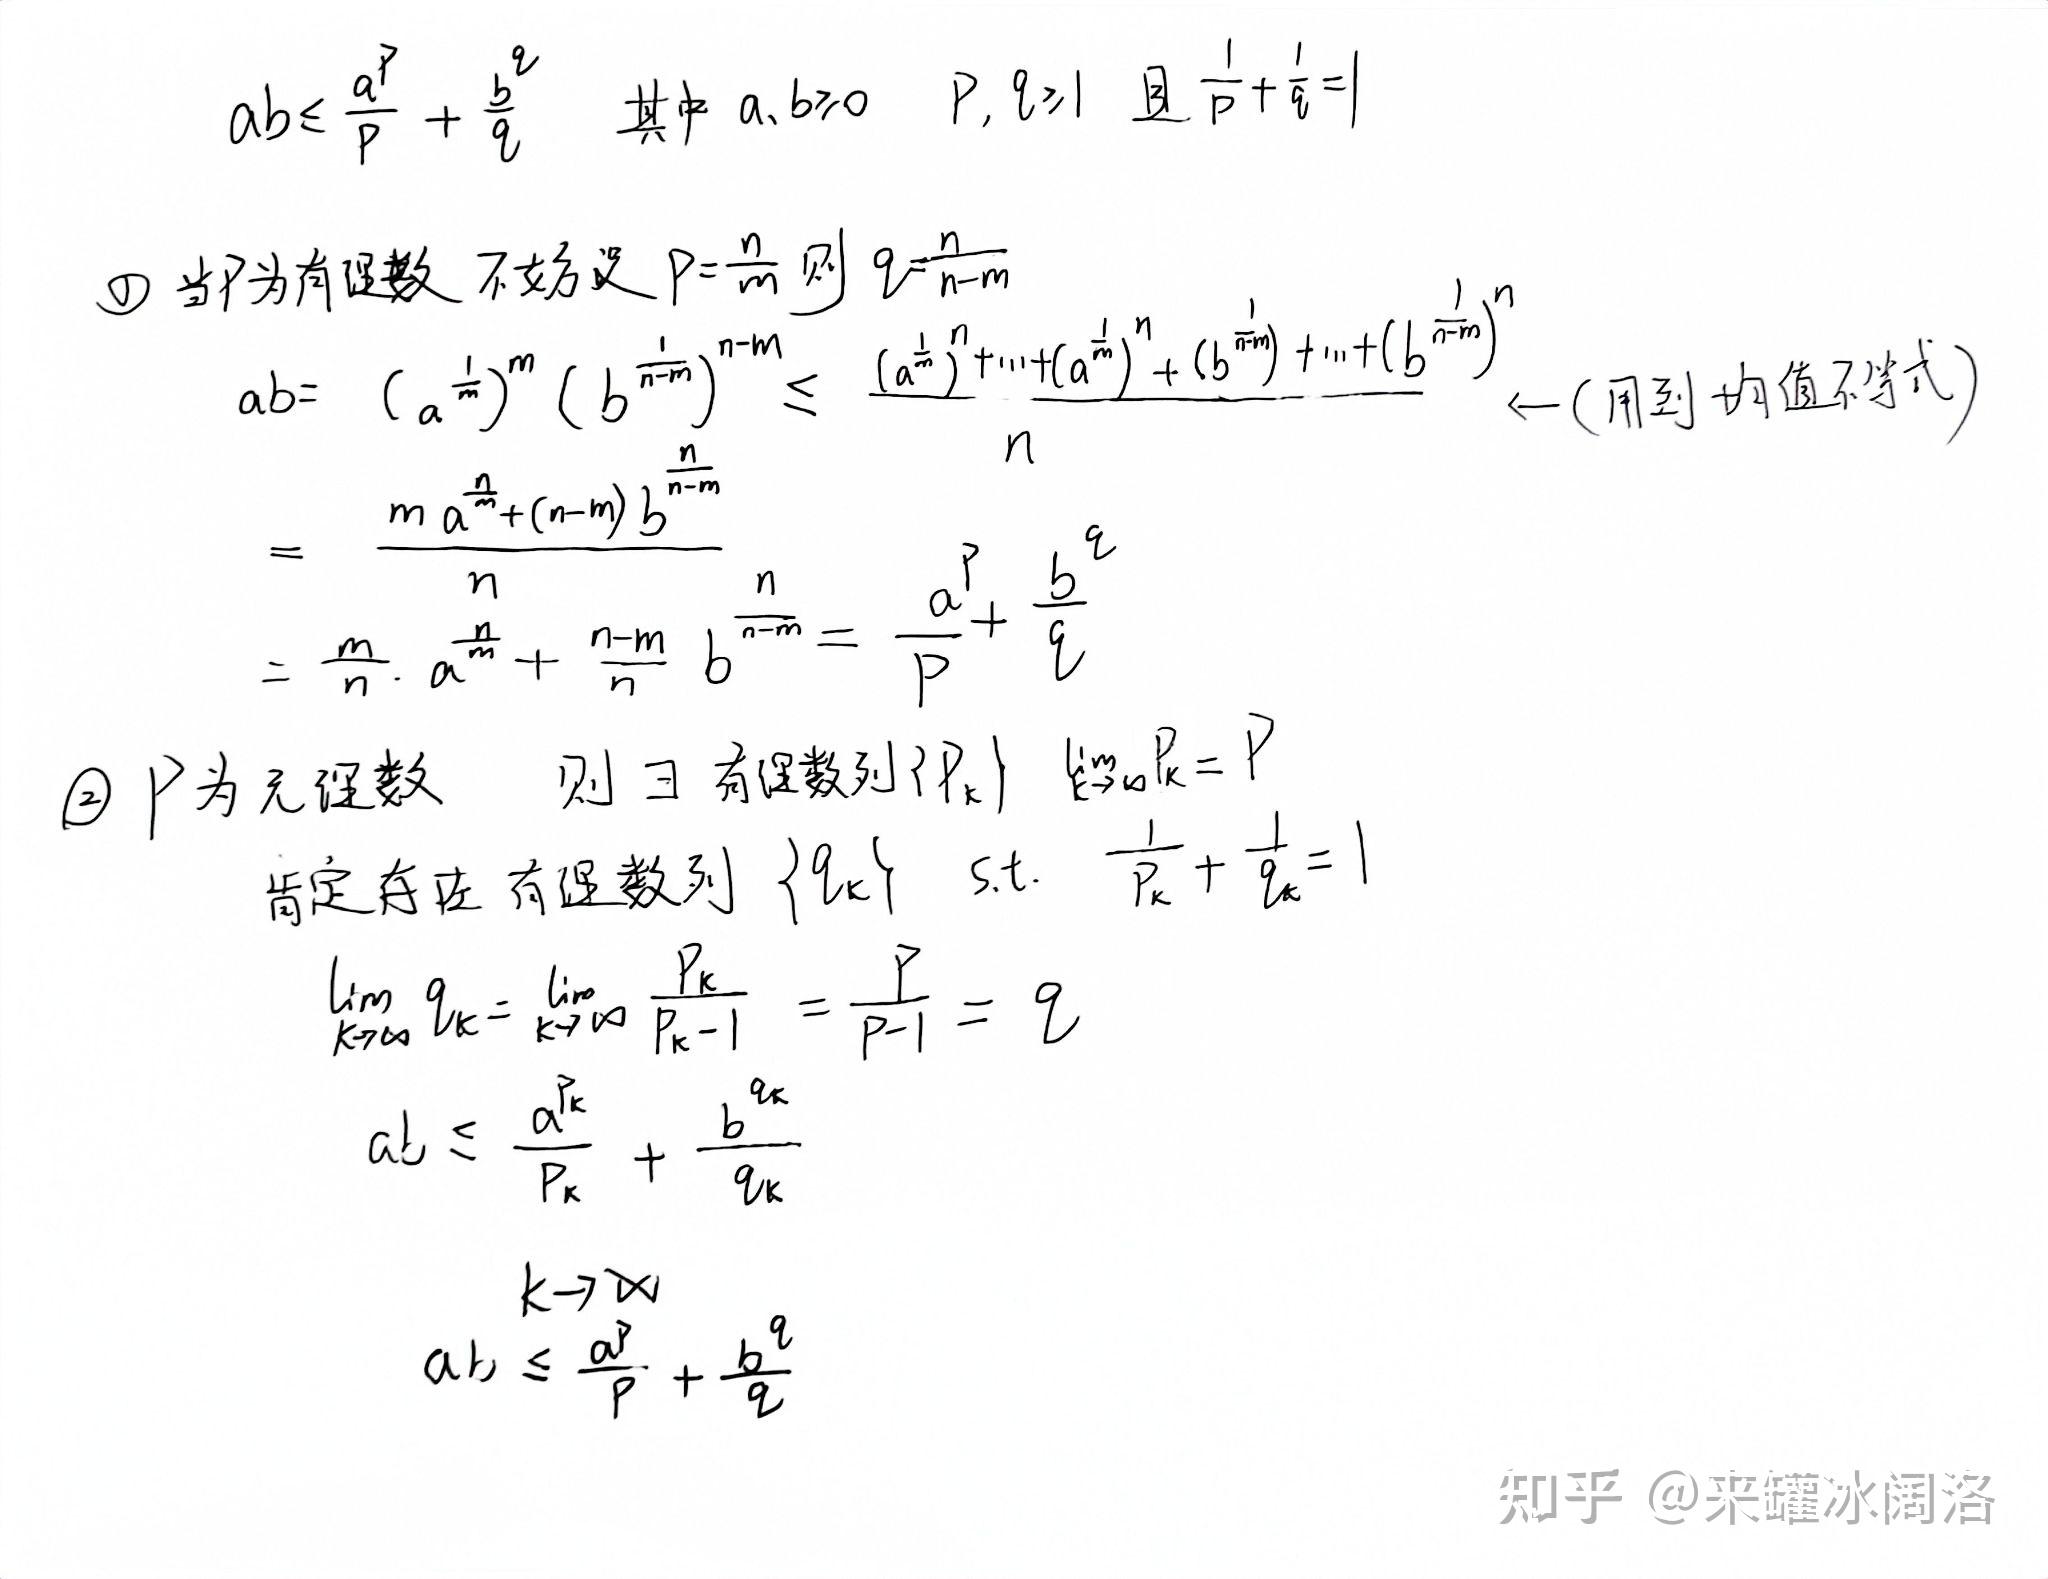 ab≤ a^p/p + b^q/q 其中 a、b≥0 P, q≥1 且 1/p + 1/q = 1
① 当P为有理数 不妨设 P = n/m 则 q = n/(n-m)
ab= (a^(1/m))^m (b^(1/(n-m)))^(n-m) ≤ [(a^(1/m))^n +...+ (a^(1/m))^n + (b^(1/(n-m))) +...+ (b^(1/(n-m)))^n] / n ←(用到均值不等式)
= [m a^(n/m) + (n-m) b^(n/(n-m))] / n
= m/n · a^(n/m) + (n-m)/n b^(n/(n-m)) = a^p/p + b^q/q
② P为无理数 则 ∃ 有理数列{P_k} lim_{k→∞} P_k = P
肯定存在 有理数列 {q_k} s.t. 1/P_k + 1/q_k = 1
lim_{k→∞} q_k = lim_{k→∞} P_k/(P_k-1) = P/(P-1) = q
ab ≤ a^(P_k)/P_k + b^(q_k)/q_k
k→∞
ab ≤ a^p/p + b^q/q
知乎 @来罐冰阔洛